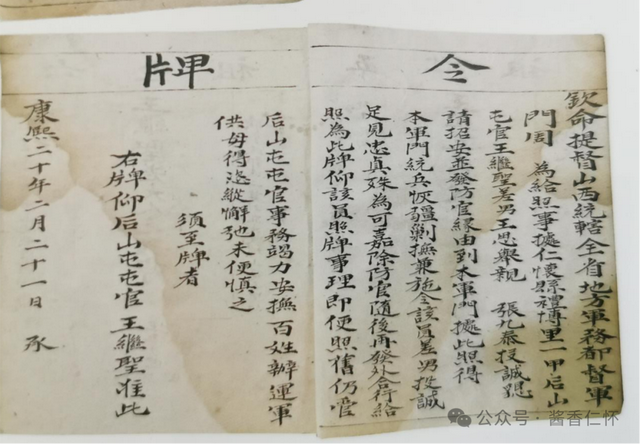 令牌
欽命提督山西統轄全省地方軍務都督軍
門周 為給照事據仁懷縣禮博里一甲后山
屯官王繼聖差男王忠舉親 張九泰投誠
請招安並發防官緣由到本軍門據此照得
本軍門統兵恢疆剿撫兼施今該員差男投誠
足見忠貞殊為可嘉除防官隨後再發外合行給
照為此牌仰該員照牌事理即便照舊仍管
后山屯屯官事務竭力安撫百姓辦運軍
供毋得縱懈弛未便慎之
須至牌者
右牌仰后山屯屯官王繼聖准此
康熙二十年二月二十一日 承
公众号·酱香仁怀